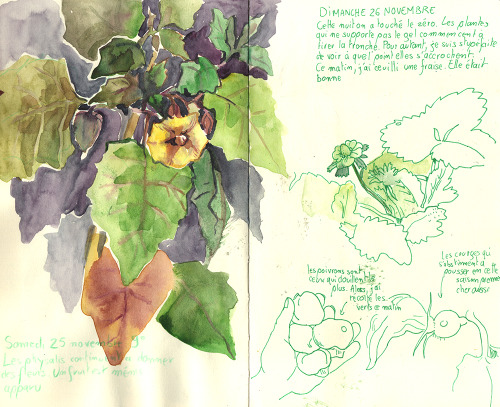 Samedi 25 novembre 9°
Les physalis continuent à donner
des fleurs. Un fruit est même
apparu
DIMANCHE 26 NOVEMBRE
Cette nuit on a touché le zéro. Les plantes
qui ne supporte pas le gel commencent à
tirer la tronche. Pour autant, je suis stupéfaite
de voir à quel point elles s'accrochent.
Ce matin, j'ai cueilli une fraise. Elle était
bonne
les poivrons sont
celui qui douillent le
plus. Alors, j'ai
récolté les
verts ce matin
Les courges qui
s'obstinent à
pousser en cette
saison